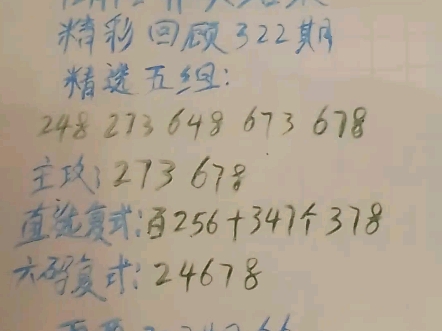 精彩回顾322期
精选五组:
248 273 648 673 678
主攻: 273 678
直选复式:百256+347个378
六码复式: 24678